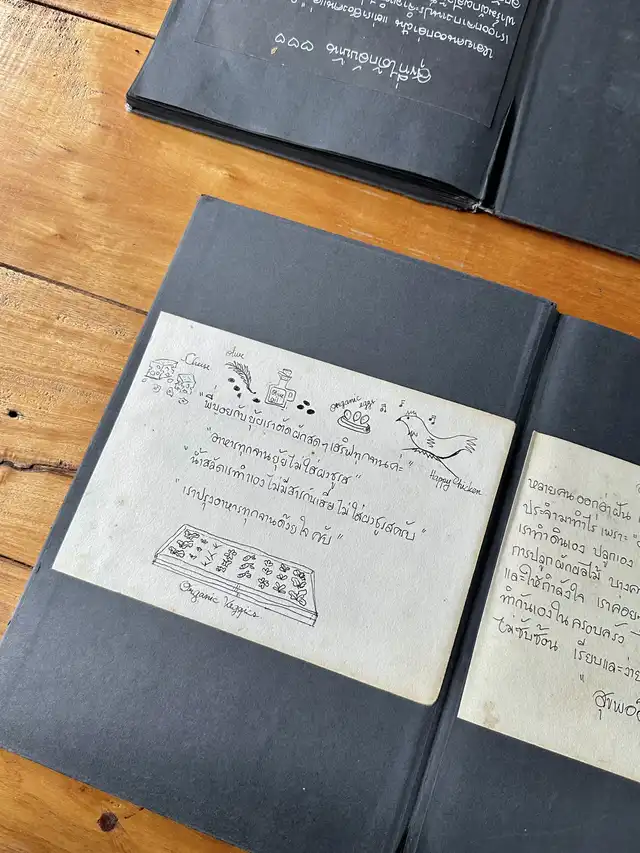 สุขที่ได้ทักอีกนั้น ♡♡♡
Cheese
Olive
Organic eggs
Happy Chicken
"พี่บอยกับยุ้ยเราตัดผักสดๆ เสิร์ฟทุกจานค่ะ"
"อาหารทุกจานยุ้ยไม่ใส่ผงชูรส"
"น้ำสลัดเราทำเองไม่มีสารกันเสีย ไม่ใส่ผงชูรสครับ"
"เราปรุงอาหารทุกจานด้วยใจ ครับ"
Organic Veggies
หลายคน ออกล่าฝัน
ประจำมาทำไร่ เพราะ
เราทำดินเอง ปลูกเอง
การปลูกผักผลไม้ บางค
และใช้กำลังใจ เราค่อย
ทำกันเองใน ครอบครัว
ไม่ซับซ้อน เรียบและง่าย
สุขพอ